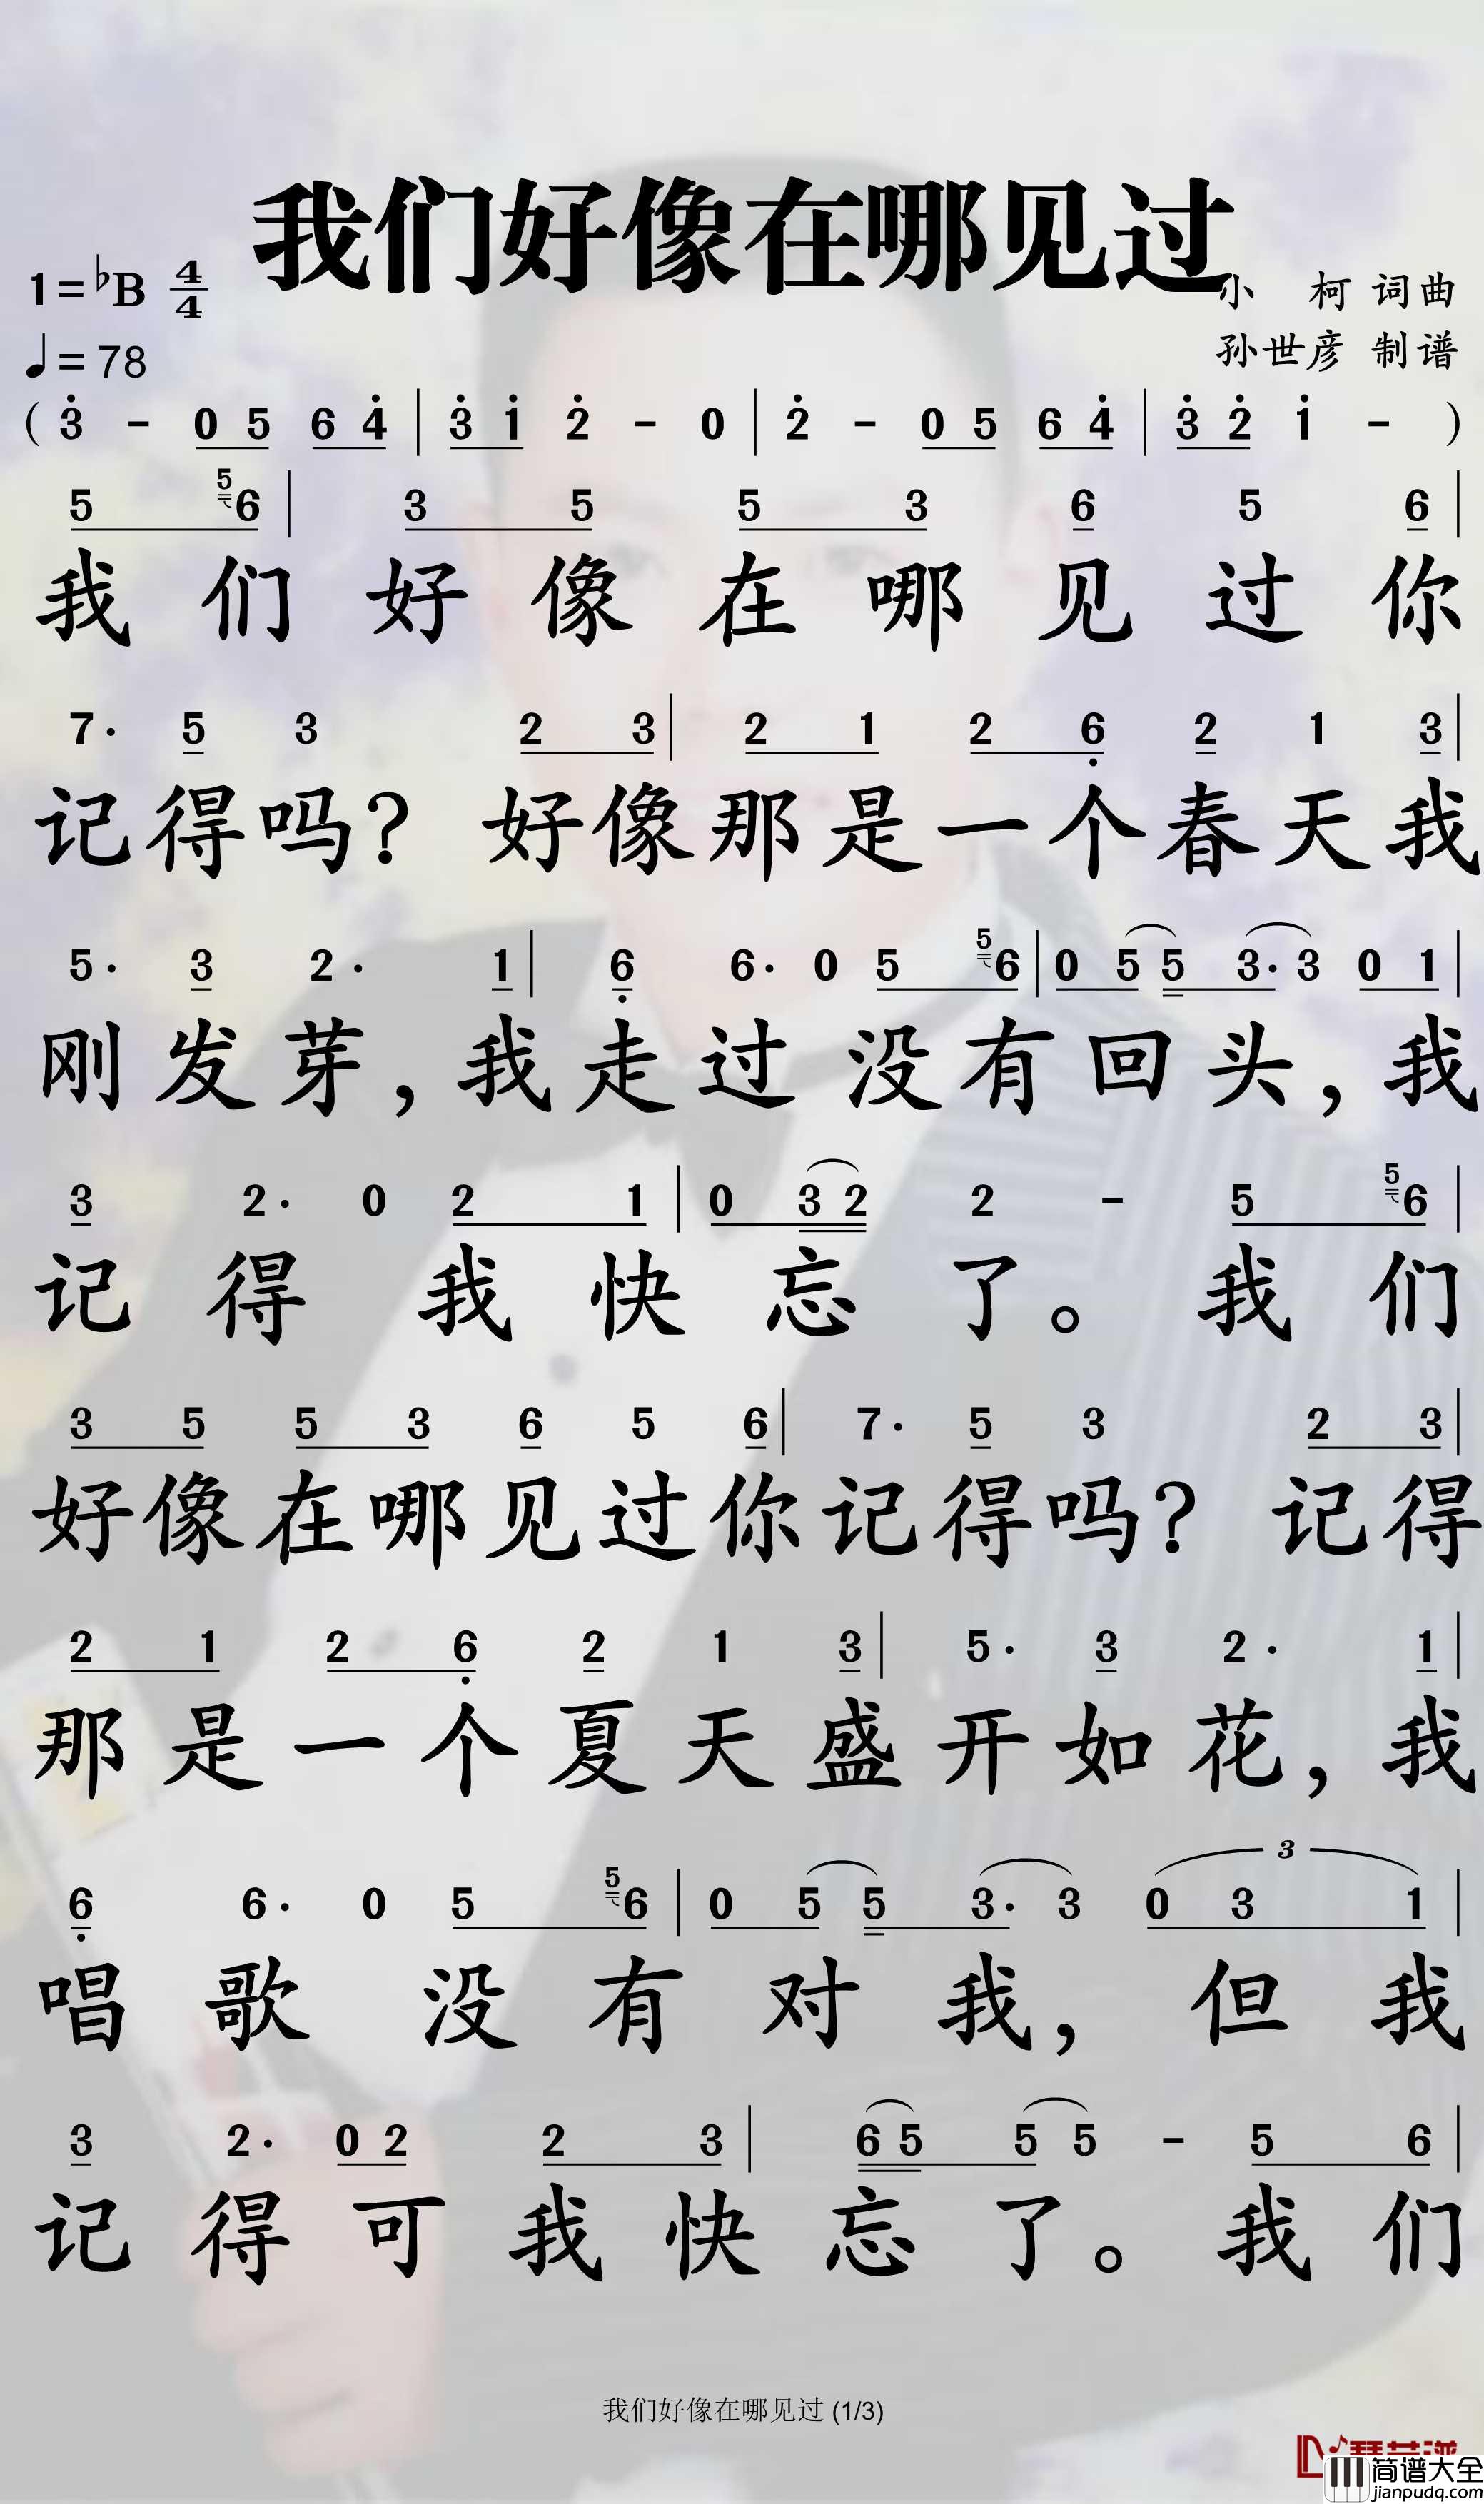 我们好像在哪见过
1=♭B 4/4
小 柯 词曲
♩=78
孙世彦 制谱
( 3̇ - 0 5 6 4̇ | 3̇ 1̇ 2̇ - 0 | 2̇ - 0 5 6 4̇ | 3̇ 2̇ 1̇ - )
5 5 6 | 3 5 5 3 6 5 6 |
我们好像在哪见过你
7· 5 3 2 3 | 2 1 2 6̣ 2 1 3 |
记得吗？ 好像那是一个春天我
5· 3 2· 1 | 6̣ 6· 0 5 5 6 | 0 5 5 3· 3 0 1 |
刚发芽，我走过没有回头，我
3 2· 0 2 1 | 0 3 2 2 - 5 5 6 |
记得我快忘了。我们
3 5 5 3 6 5 6 | 7· 5 3 2 3 |
好像在哪见过你记得吗？ 记得
2 1 2 6̣ 2 1 3 | 5· 3 2· 1 |
那是一个夏天盛开如花，我
3
6̣ 6· 0 5 5 6 | 0 5 5 3· 3 0 3 1 |
唱歌没有对我，但我
3 2· 0 2 2 3 | 6 5 5 5 - 5 6 |
记得可我快忘了。我们
我们好像在哪见过 (1/3)
简谱大全
jianpudq.com